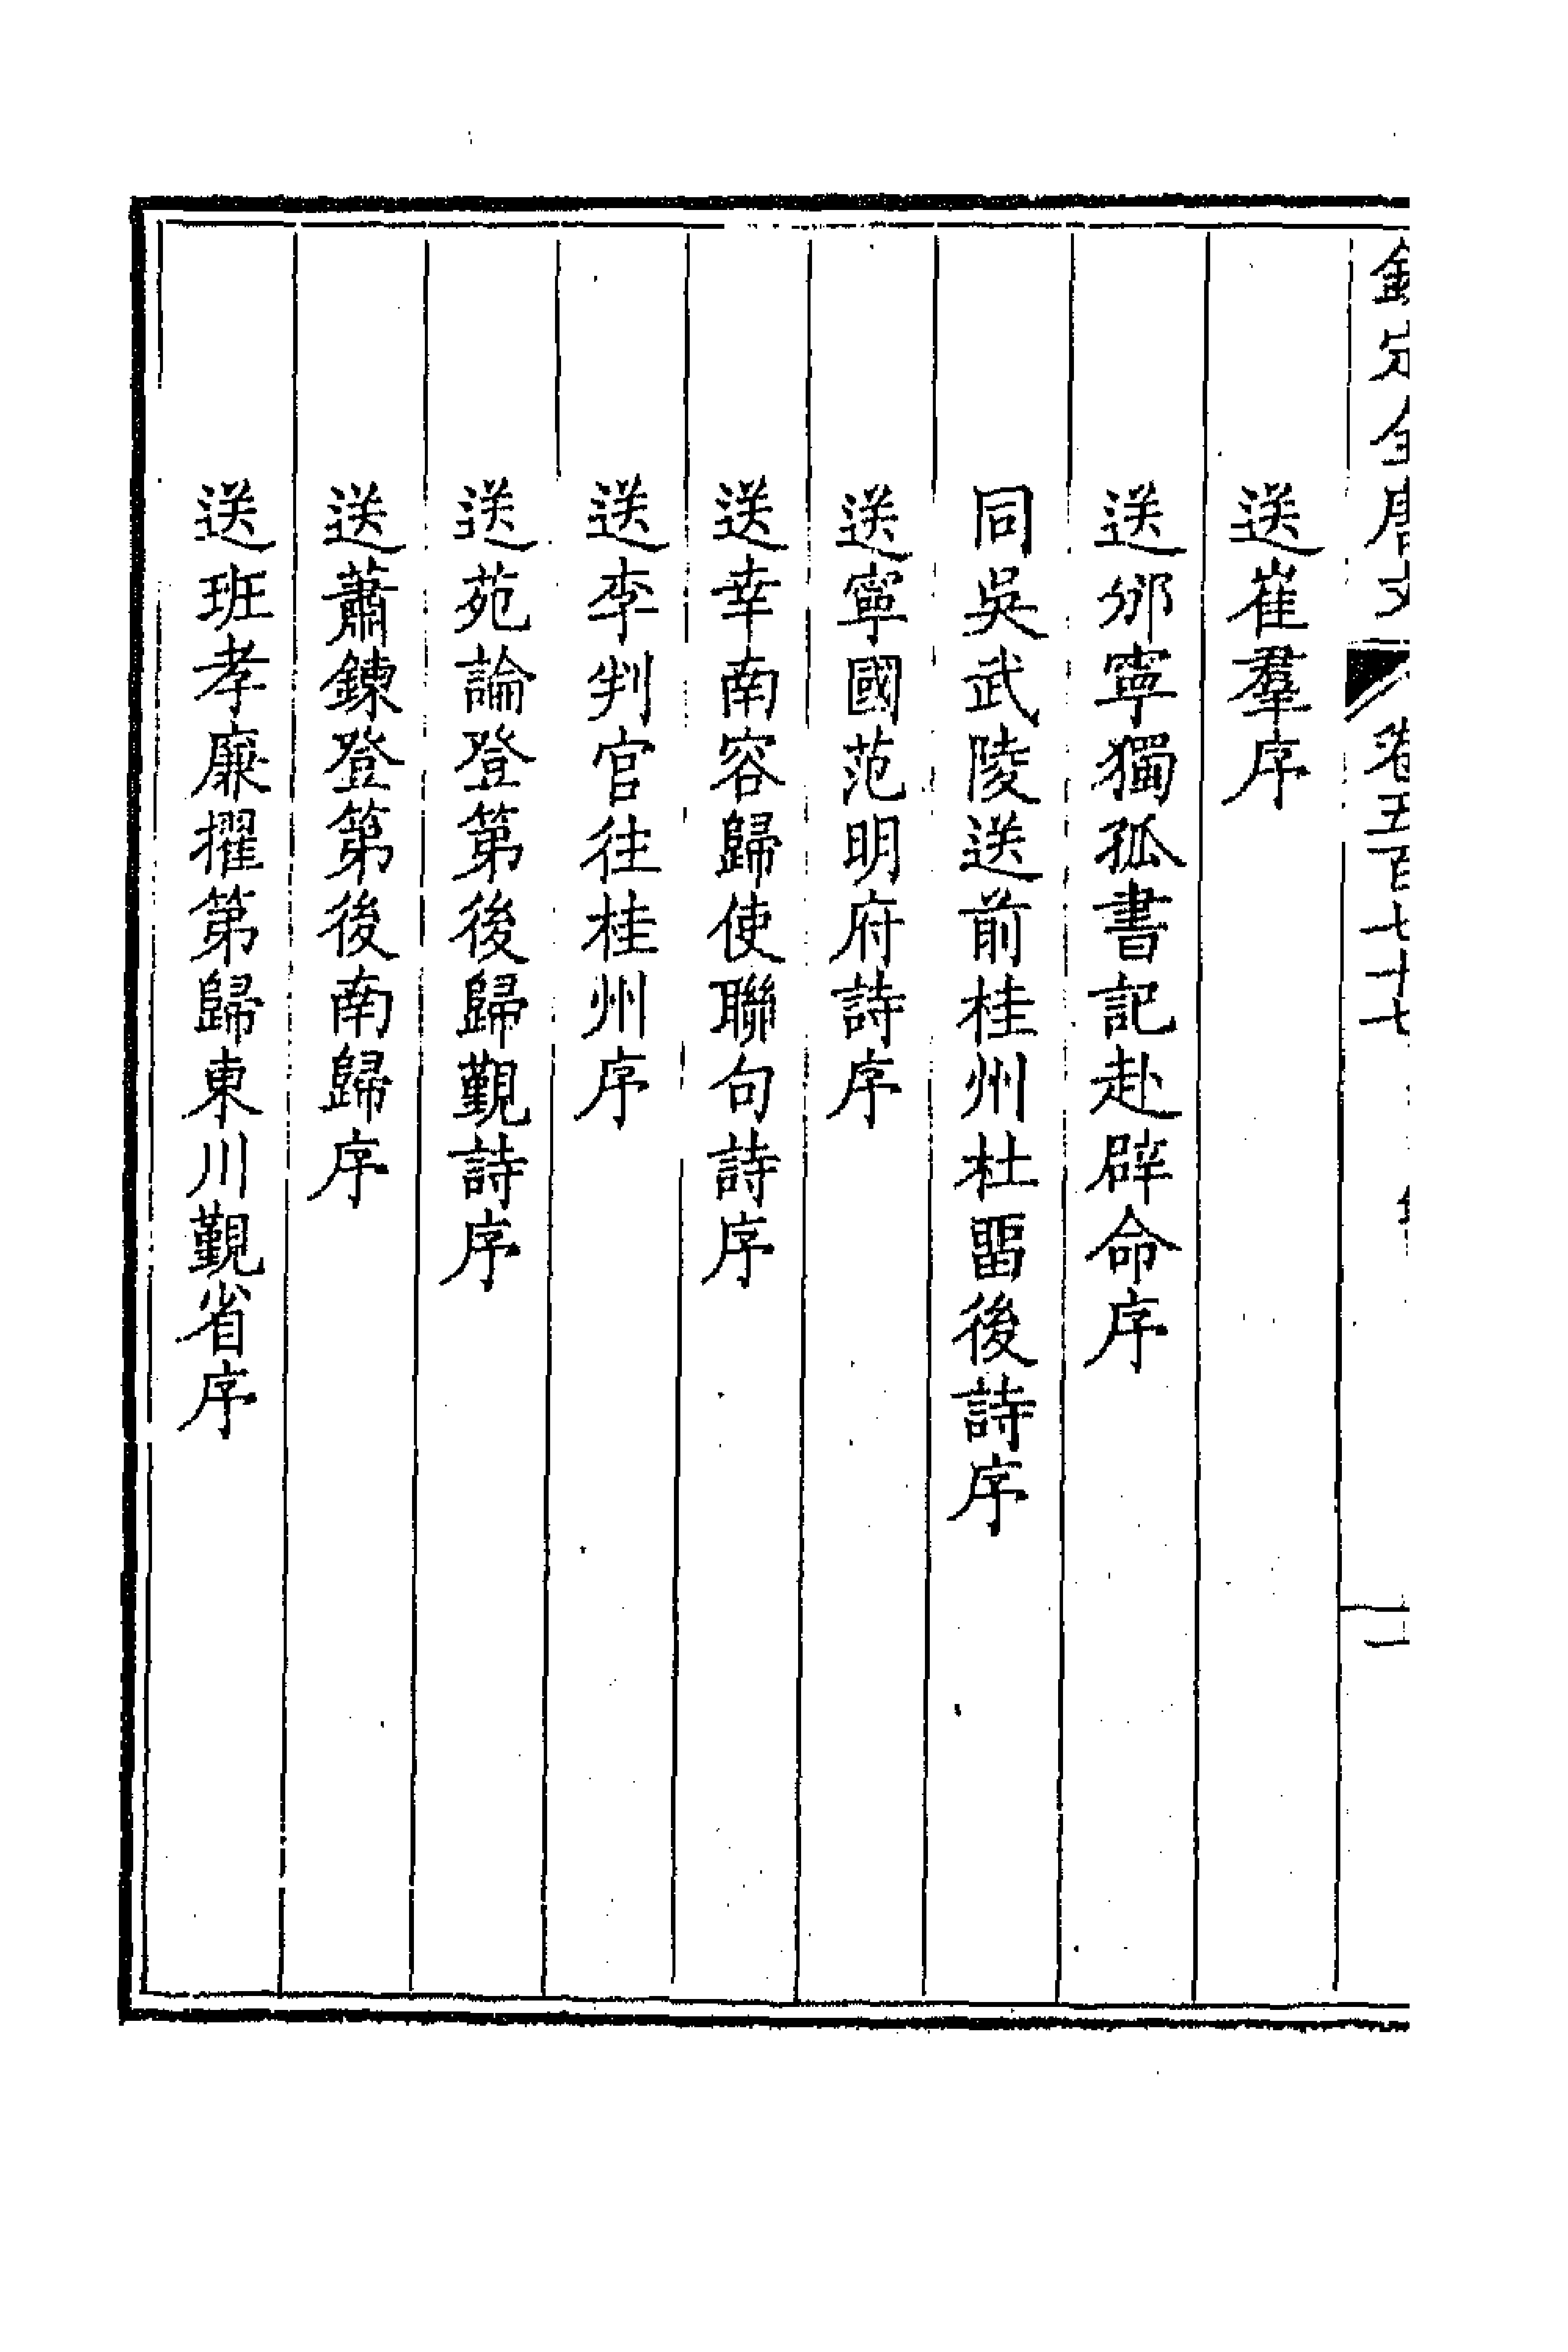 欽定全唐文 卷五百七十七 一
送崔羣序
送邠寧獨孤書記赴辟命序
同吳武陵送前桂州杜畱後詩序
送寧國范明府詩序
送幸南容歸使聯句詩序
送李判官往桂州序
送苑論登第後歸覲詩序
送蕭鍊登第後南歸序
送班孝廉擢第歸東川覲省序